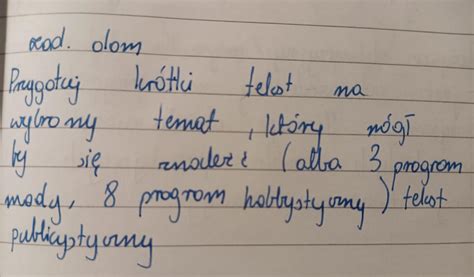 zad. dom
Przygotuj krótki tekst na
wybrany temat, który mógł
by się znaleźć (alba 3 program
mody, 8 program hobbystyczny) tekst
publicystyczny